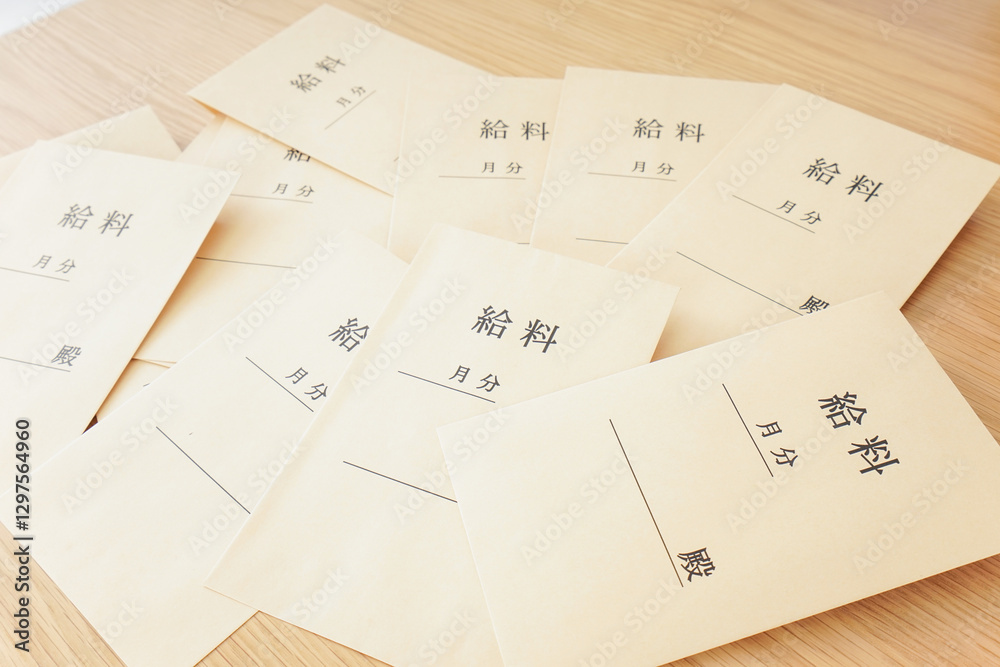 給料
月分
給料
月分
給料
月分
給料
月分
給
月分
給料
月分
殿
給料
月分
殿
給
月分
給料
月分
給料
月分
殿
Adobe Stock | #1297564960